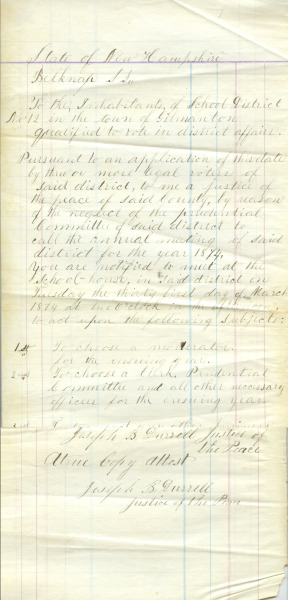 State of New Hampshire
Belknap SS.
To the Inhabitants of School District
No 12 in the town of Gilmanton
qualified to vote in district affairs.
Pursuant to an application of this date
by three or more legal voters of
said district, to me a justice of
the peace of said County, by reason
of the neglect of the prudential
Committee of said district to
call the annual meeting of said
district for the year 1874,
You are notified to meet at the
School-house, in said district on
Tuesday the thirty first day of March
1874 at o'clock in the
to act upon the following subjects:
1st To choose a moderator
for the ensuing year.
2nd To choose a Clerk, Prudential
Committee and all other necessary
officers for the ensuing year
Joseph B. Durrell Justice of
the Peace
A true Copy Attest
Joseph B Durrell
Justice of the Peace